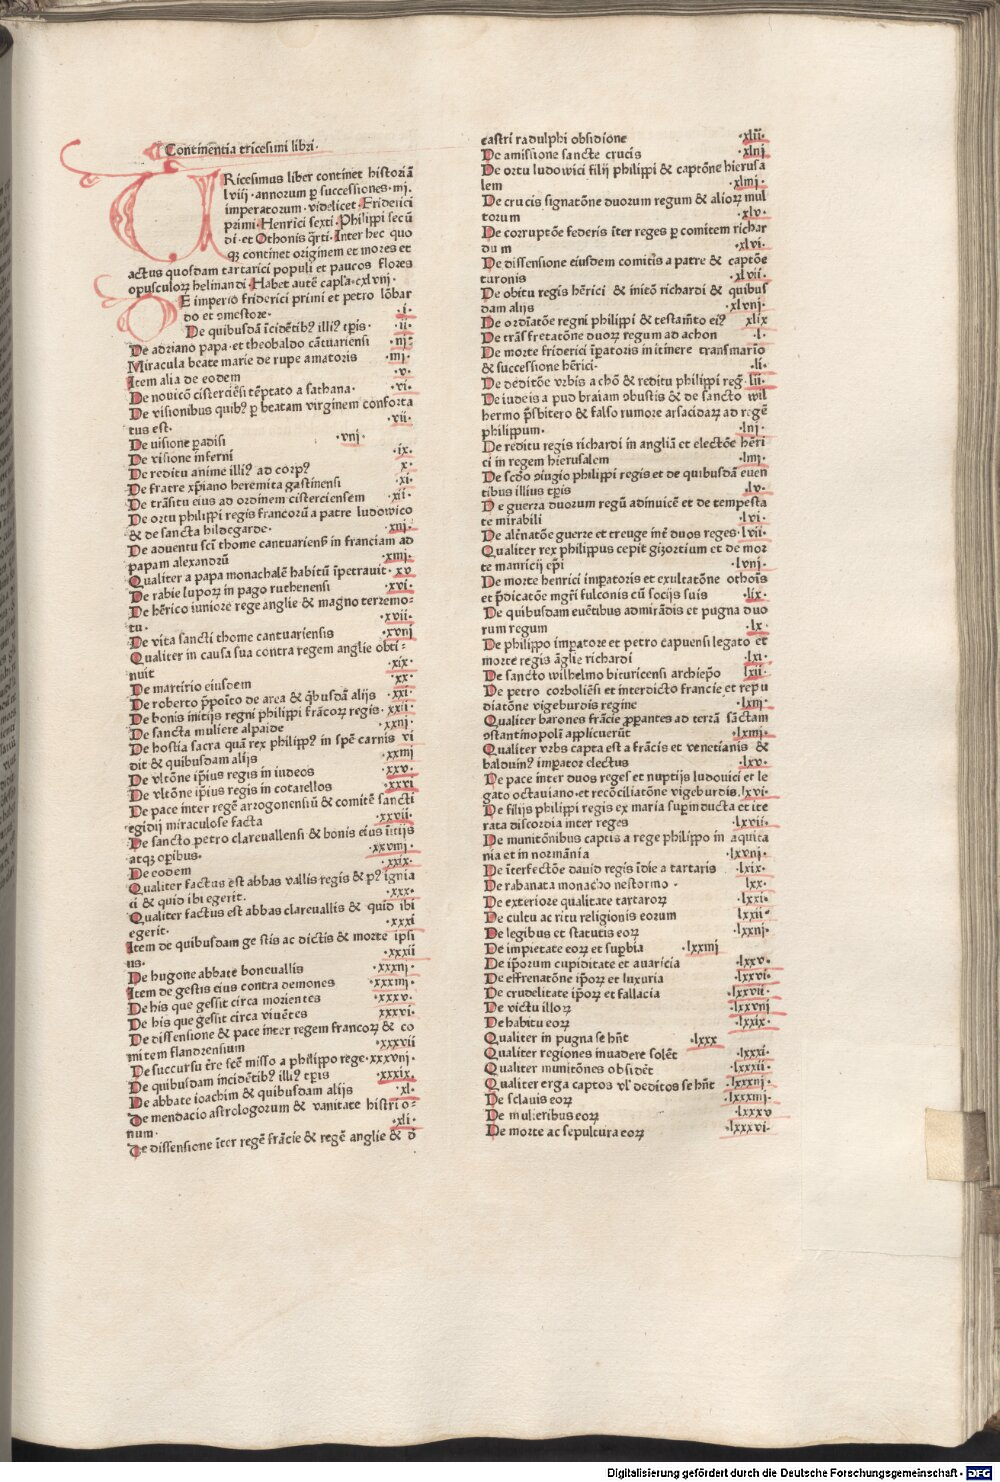 Continentia tricesimi libri·
TRicesimus liber continet historiā
lviii·annorum ꝑ successiones·iiij·
imperatorum·videlicet·Friderici
primi·Henrici sexti·Philippi secū
di·et Othonis q̄rti·Inter hec quo
qꝫ continet originem et mores et
actus quosdam tartarici populi et paucos flores
opusculoꝝ helinandi·Habet autē capl'a·cxlvij·
DE imperio friderici primi et petro lōbar
do et ꝯmestore· ·i·
De quibusdā īcidētibꝰ illiꝰ tꝑis· ·ii·
De adriano papa·et theobaldo cātuariensi ·iij·
Miracula beate marie de rupe amatoris ·iiij·
Item alia de eodem ·v·
De nouicō cisterciēsi tēptato a sathana· ·vi·
De visionibus quibꝰ ꝑ beatam virginem conforta
tus est· ·vii·
De uisione ꝑadisi ·viij·
De visione inferni ·ix·
De reditu anime illiꝰ ad corpꝰ x·
De fratre xp̄iano heremita gastinensi ·xi·
De trāsitu eius ad ordinem cisterciensem ·xii·
De ortu philippi regis francorū a patre ludowico
& de sancta hildegarde· ·xiij·
De aduentu sc̄i thome cantuariens̄ in franciam ad
papam alexandrū ·xiiij·
Qualiter a papa monachalē habitū īpetrauit·xv
De rabie lupoꝝ in pago ruthenensi ·xvi·
De hērico iuniore rege anglie & magno terremo-
tu· ·xvii·
De vita sancti thome cantuariensis ·xviij
Qualiter in causa sua contra regem anglie obti-
nuit ·xix·
De martirio eiusdem ·xx·
De roberto p̄poīto de area & q̄busdā alijs ·xxi·
De bonis initijs regni philippi frācoꝝ regis·xxii·
De sancta muliere alpaide ·xxiij·
De hostia sacra quā rex philippꝰ in spē carnis vi
dit & quibusdam alijs ·xxiiij
De vltōne ip̄ius regis in iudeos ·xxv·
De vltōne ip̄ius regis in cotarellos ·xxvi
De pace inter regē arrogonensiū & comitē sancti
egidij miraculose facta ·xxvii·
De sancto petro clareuallensi & bonis eius initijs
atqꝫ oꝑibus· ·xxviij·
De eodem ·xxix·
Qualiter factus est abbas vallis regis & pꝰ ignia
ci & quid ibi egerit· ·xxx·
Qualiter factus est abbas clareuallis & quid ibi
egerit· ·xxxi
Item de quibusdam ge stis ac dictis & morte ipsi
us· ·xxxii
De hugone abbate boneuallis ·xxxiij·
Item de gestis eius contra demones ·xxxiiij·
De his que gessit circa morientes ·xxxv·
De his que gessit circa viuētes ·xxxvi·
De dissensione & pace inter regem francoꝝ & co
mitem flandrensium ·xxxvii
De succursu t̄re scē misso a philippo rege·xxxviij·
De quibusdam incidētibꝰ illiꝰ tꝑis ·xxxix·
De abbate ioachim & quibusdam alijs ·xl·
De mendacio astrologorum & vanitate histri o-
num· ·xli·
De dissensione īter regē frācie & regē anglie & d̄
castri radulphi obsidione ·xlii·
De amissione sancte crucis ·xliij
De ortu ludowici filij philippi & captōne hierusa
lem ·xliiij·
De crucis signatōne duorum regum & alioꝝ mul
torum ·xlv·
De corruptōe federis īter reges ꝑ comitem richar
du m ·xlvi·
De dissensione eiusdem comitis a patre & captōe
turonis ·xlvii·
De obitu regis hērici & initō richardi & quibus
dam alijs ·xlviij·
De ordīatōe regni philippi & testamēto eiꝰ xlix
De trāsfretatōne duoꝝ regum ad achon ·l·
De morte friderici īpatoris in itinere transmarīo
& successione hērici· ·li·
De deditōe vrbis achō & reditu philippi reḡ·lii·
De iudeis apud braiam ꝯbustis & de sancto wil
hermo p̄sbitero & falso rumore arsacidaꝝ ad regē
philippum· ·liij·
De reditu regis richardi in angliā et electōe hēri
ci in regem hierusalem ·liiij·
De scd̄o ꝯiugio philippi regis et de quibusdā euen
tibus illius tꝑis ·lv·
De guerra duorum regū adinuicē et de tempesta
te mirabili ·lvi·
De alēnatōe guerre et treuge int̄ duos reges·lvii·
Qualiter rex philippus cepit gizortium et de mor
te mauricij ep̄i ·lviij·
De morte henrici imꝑatoris et exultatōne othoīs
et p̄dicatōe mgr̄i fulconis cū socijs suis ·lix·
De quibusdam euētibus admirādis et pugna duo
rum regum ·lx·
De philippo imꝑatore et petro capuensi legato et
morte regis āglie richardi ·lxi·
De sancto wilhelmo bituricensi archiep̄o ·lxii·
De petro corboliēsi et interdicto francie et repu
diatōne vigeburdis regine ·lxiij·
Qualiter barones frācie ꝓꝑantes ad terrā sāctam
ꝯstantinopolī applicuerūt ·lxiiij·
Qualiter vrbs capta est a frācis et venetianis &
balduinꝰ imꝑator electus ·lxv·
De pace inter duos reges et nuptijs ludouici et le
gato octauiano·et recōciliatōne vigeburdis·lxvi·
De filijs philippi regis ex maria suꝑinducta et ite
rata discordia inter reges ·lxvii·
De munitōnibus captis a rege philippo in aquita
nia et in normānia ·lxviij·
De īterfectōe dauid regis īdie a tartaris ·lxix·
De rabanata monacho nestorino · lxx·
De exteriore qualitate tartaroꝝ ·lxxi·
De cultu ac ritu religionis eorum ·lxxii·
De legibus et statutis eoꝝ ·lxxiij·
De impietate eoꝝ et suꝑbia ·lxxiiij
De ip̄orum cupiditate et auaricia ·lxxv·
De effrenatōne ip̄oꝝ et luxuria ·lxxvi·
De crudelitate ip̄oꝝ et fallacia ·lxxvii·
De victu illoꝝ ·lxxviij
De habitu eoꝝ ·lxxix·
Qualiter in pugna se hn̄t ·lxxx
Qualiter regiones inuadere solēt ·lxxxi·
Qualiter munitōnes obsidēt ·lxxxii·
Qualiter erga captos vl' deditos se hn̄t ·lxxxiij·
De sclauis eoꝝ ·lxxxiiij·
De mulieribus eoꝝ ·lxxxv
De morte ac sepultura eoꝝ ·lxxxvi·
Digitalisierung gefördert durch die Deutsche Forschungsgemeinschaft - DFG